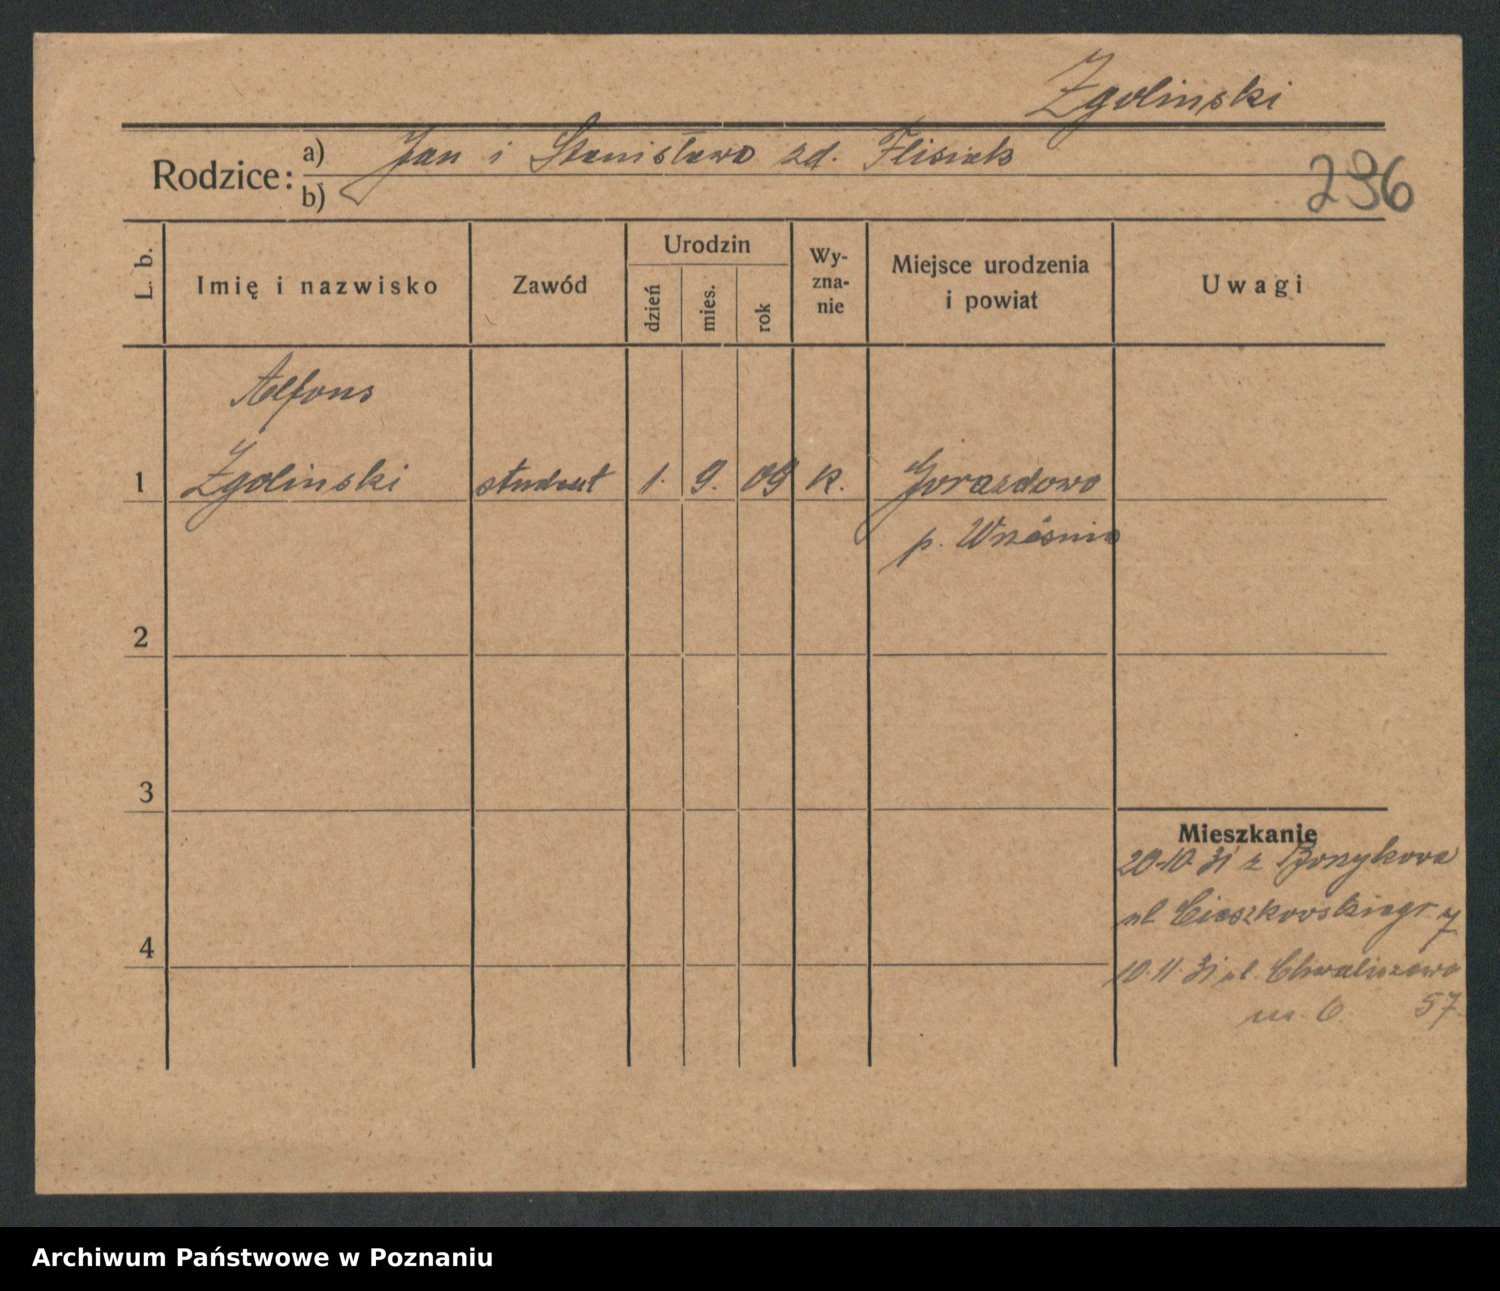 Zgolinski
Rodzice: a) Jan i Stanisława zd. Flisiak
b)
236
L. b.
Imię i nazwisko
Zawód
Urodzin
dzień
mies.
rok
Wy-
zna-
nie
Miejsce urodzenia
i powiat
Uwagi
Alfons
1 Zgolinski student 1. 9. 09 k. Gorazdowo
p. Września
2
3
Mieszkanie
20.10.31 z
ul Cieszkowskiego 7
4
10.11.31 ul. Chwaliszewo
m. 6 57
Archiwum Państwowe w Poznaniu